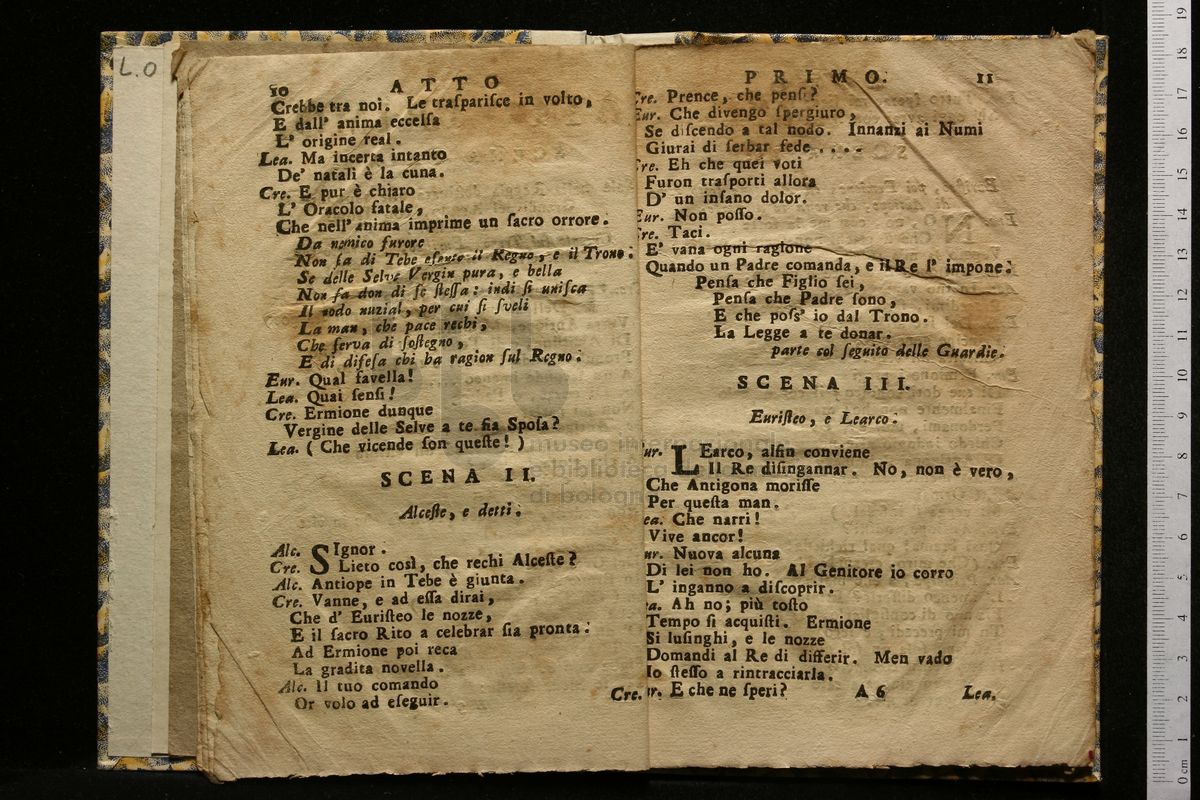 L.O
10 ATTO
Crebbe tra noi. Le traſpariſce in volto,
E dall' anima eccelſa
L' origine real.
Lea. Ma incerta intanto
De' natali è la cuna.
Cre. E pur è chiaro
L' Oracolo fatale,
Che nell' anima imprime un ſacro orrore.
Da nemico furore
Non fia di Tebe eſente il Regno, e il Trono:
Se delle Selve Vergin pura, e bella
Non fa don di ſe ſteſſa: indi ſi uniſca
Il nodo nuzial, per cui ſi ſveli
La man, che pace rechi,
Che ſerva di ſoſtegno,
E di difeſa chi ha ragion ſul Regno.
Eur. Qual favella!
Lea. Quai ſenſi!
Cre. Ermione dunque
Vergine delle Selve a te fia Spoſa?
Lea. (Che vicende ſon queſte!)
SCENA II.
Alceſte, e detti.
Alc. SIgnor.
Cre. Lieto così, che rechi Alceſte?
Alc. Antiope in Tebe è giunta.
Cre. Vanne, e ad eſſa dirai,
Che d' Euriſteo le nozze,
E il ſacro Rito a celebrar ſia pronta.
Ad Ermione poi reca
La gradita novella.
Alc. Il tuo comando
Or volo ad eſeguir.
Cre.
PRIMO. 11
Cre. Prence, che penſi?
Eur. Che divengo ſpergiuro,
Se diſcendo a tal nodo. Innanzi ai Numi
Giurai di ſerbar fede....
Cre. Eh che quei voti
Furon traſporti allora
D' un inſano dolor.
Eur. Non poſſo.
Cre. Taci.
E' vana ogni ragione
Quando un Padre comanda, e il Re l' impone.
Penſa che Figlio ſei,
Penſa che Padre ſono,
E che poſſ' io dal Trono.
La Legge a te donar.
parte col ſeguito delle Guardie.
SCENA III.
Euriſteo, e Learco.
ur. LEarco, alfin conviene
Il Re diſingannar. No, non è vero,
Che Antigona moriſſe
Per queſta man.
ea. Che narri!
Vive ancor!
ur. Nuova alcuna
Di lei non ho. Al Genitore io corro
L' inganno a diſcoprir.
a. Ah no; più toſto
Tempo ſi acquiſti. Ermione
Si luſinghi, e le nozze
Domandi al Re di differir. Men vado
Io ſteſſo a rintracciarla.
ur. E che ne ſperi? A 6 Lea.
museo internazionale
e biblioteca
di bologna
0 cm 1 2 3 4 5 6 7 8 9 10 11 12 13 14 15 16 17 18 19